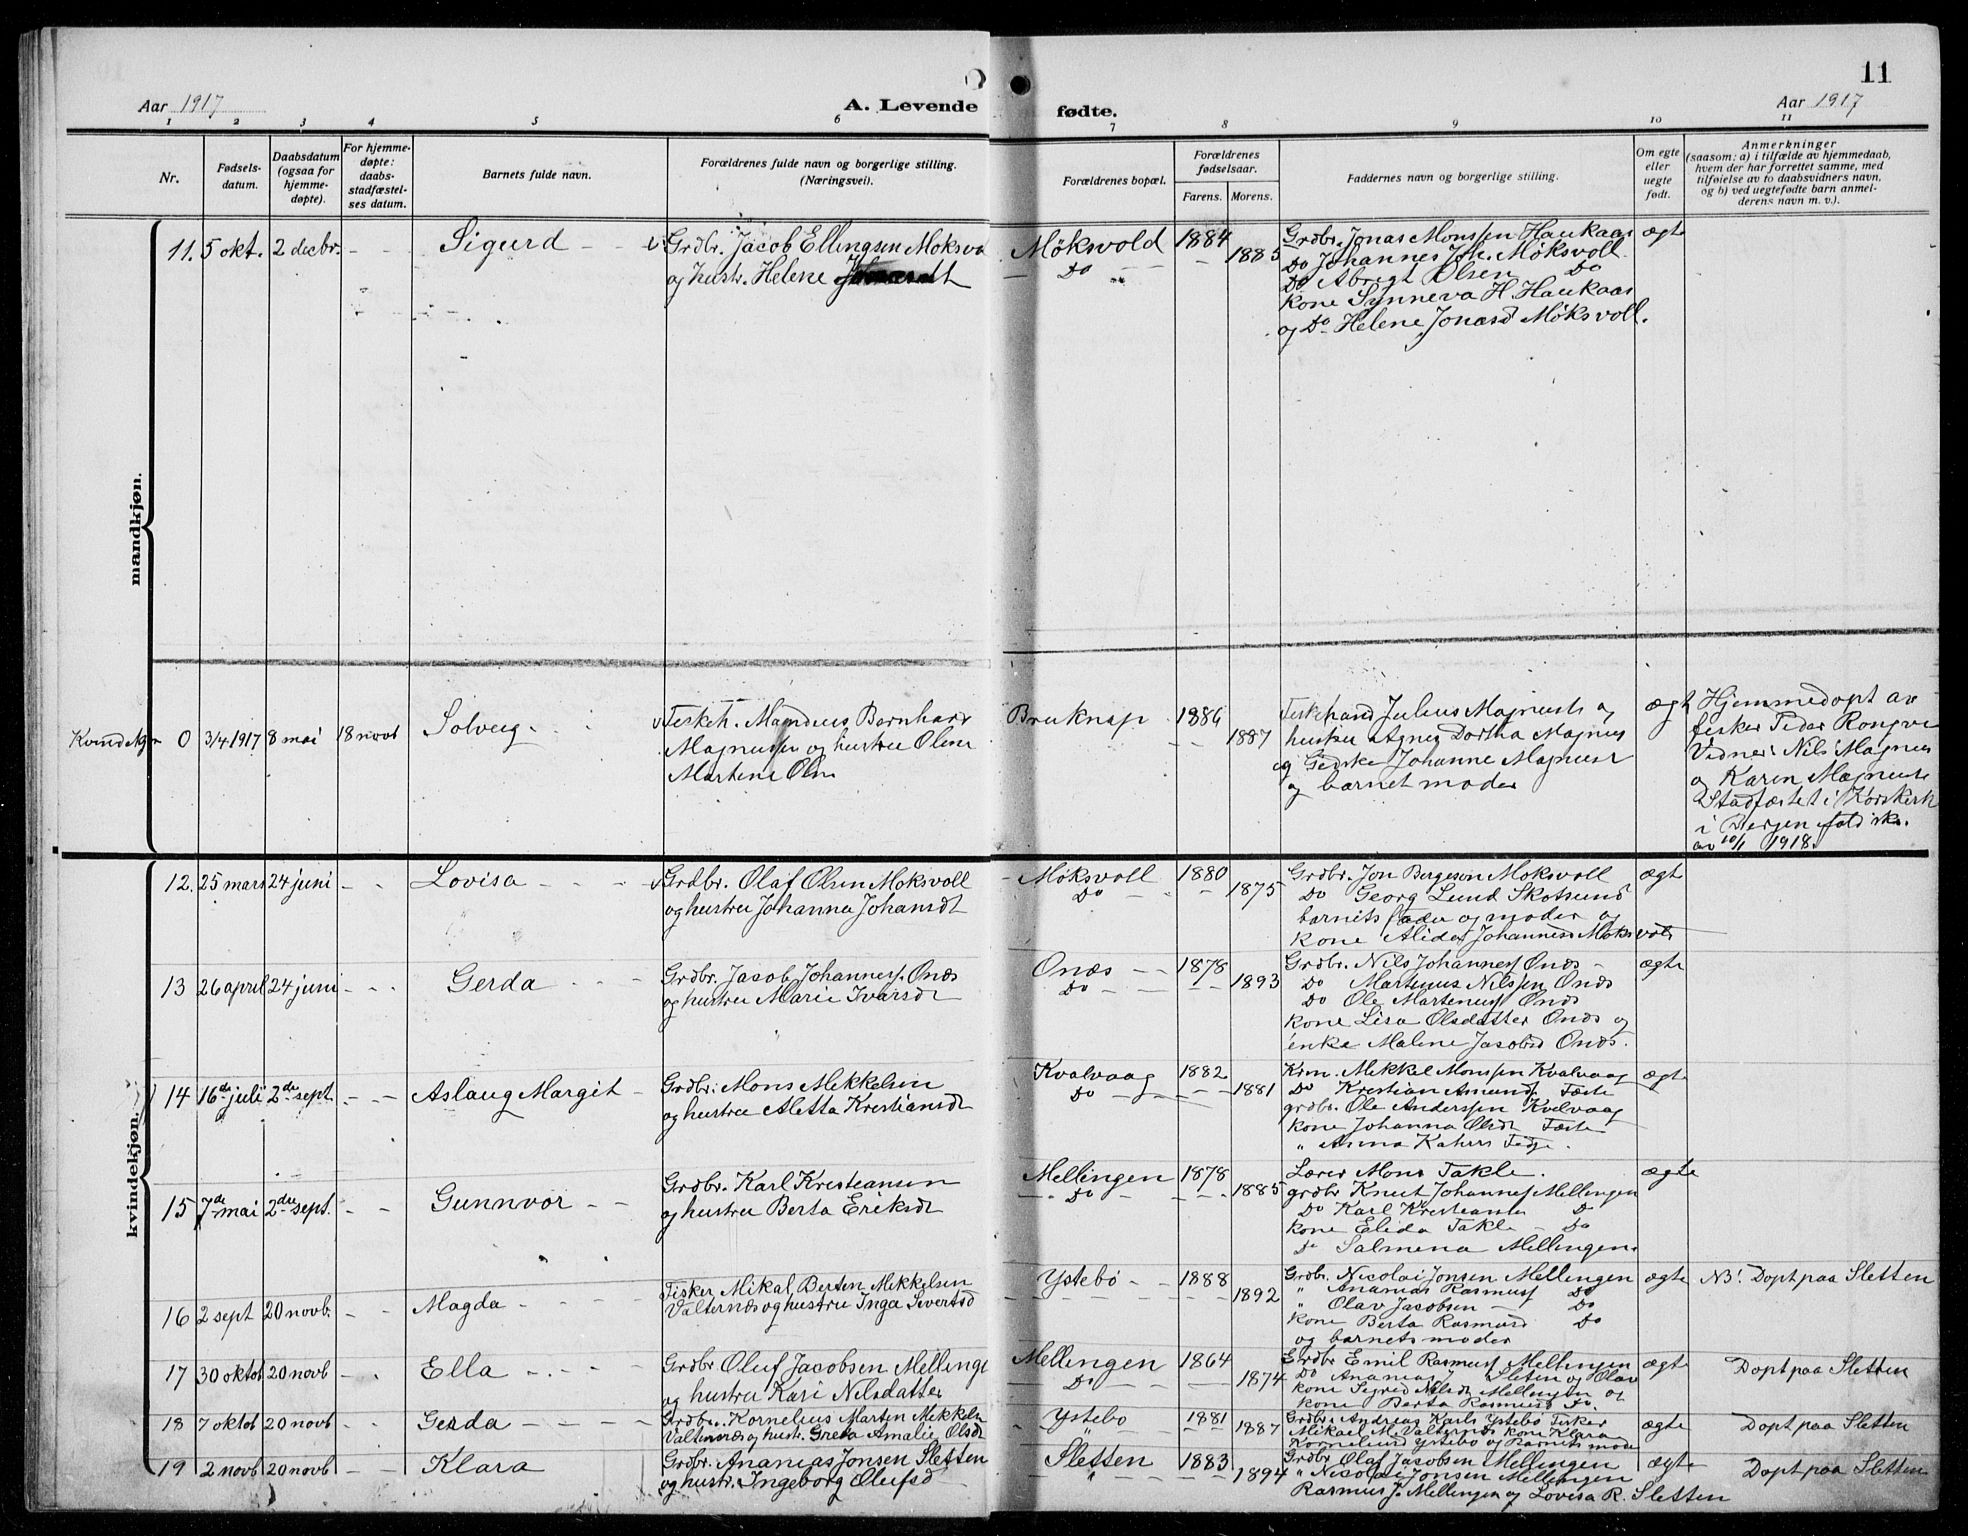 11
Aar 1917
A. Levende fødte.
Aar 1917
1 2 3 4 5 6 7 8 9 10 11
Nr.
Fødsels-
datum.
Daabsdatum
(ogsaa for
hjemme-
døpte).
For hjemme-
døpte:
daabs-
stadfæstel-
ses datum.
Barnets fulde navn.
Forældrenes fulde navn og borgerlige stilling.
(Næringsvei).
Forældrenes bopæl.
Forældrenes
fødselsaar.
Farens. Morens.
Faddernes navn og borgerlige stilling.
Om egte
eller
uegte
født.
Anmerkninger
(saasom: a) i tilfælde av hjemmedaab,
hvem der har forrettet samme, med
tilføielse av to daabsvidners navn,
og b) ved uegtefødte barn anmel-
derens navn m. v.).
mandkjøn.
11. 5 okt. 2 decbr. - - Sigurd - -
Grdbr. Jacob Ellingsen Moksvo
og hustr. Helene
Møksvold
Do
1884
1885
Grdbr. Jonas Monssen Haukaas
Do Johannes Joh. Møksvoll.
Do Abrigt Olsen Do
Kone Synneva H. Haukaas
og Do Helene Jonasd Møksvoll.
ægte
0 3/4 1917 8 mai 18 novb Solveig
Magnussen og hustru Olene
Bruknap
1886
1887
Fiskehand Julius Magnus og
og Johanne Magnus
og barnet moder
ægt
Hjemmedøpt av
fisker Peder Rongve
Vidner: Nils Magnus
og Karen Magnus
Stadfæstet i Korskirk
i Bergen
av 10/1 1918.
kvindekjøn.
12. 25 mars 24 juni - - Lovisa - - -
Grdbr. Olaf Olsen Moksvoll
og hustru Johanna Johansdt
Møksvoll
Do
1880
1875
Grdbr. Jon Bergeson Moksvoll
Do Georg Lund Skotsund
barnets fader og moder og
kone Alida Johanness Moksvoll
ægt
13 26 april 24 juni - - Gerda - - -
Grdbr. Jacob Johanness. Onæs
og hustru Marie Ivarsdt
Onæs - -
Do
1878
1893
Grdbr. Nils Johanness Onæs -
Do Martinus Nilssen Onæs
Do Ole Martenuss Onæs
kone Lisa Olsdatter Onæs og
enke Malene Jacobsd Onæs.
ægte
14 16de juli 2de sept. - - Aslaug Margit -
Grdbr. Mons Mekkelsen
og hustru Aletta Kristiansdt
Kvalvaag
Do
1882
1881
Mekkel Monssen Kvalvaag
Do Kristian Amunds. Tæste
grdbr. Ole Anderssen Kvalvaag
kone Johanna Olsdt Tæste
" Anna
ægte
15 7de mai 2den sept. - - Gunnvor - -
Grdbr. Karl Kristiansen
og hustru Berta Eriksdt
Mellingen
Do
1878
1885
Lærer Mons Takle.
grdbr Knut Johannes Mellingen
Do Karl Kristians Do
kone Elida Takle - Do
Do Salmena Mellingen.
ægte
16 2 sept 20 novb. - - Magda - - - -
Fisker Mikal Berten Mekkelsen
Valternæs og hustru Inga Severtsd
Ystebø - -
1888
1892
Grdbr. Nicolai Jonsen Mellingen
" Ananias Rasmuss Do
" Olav Jacobsen - Do
kone Berta Rasmusd Do
og barnets moder
ægte
NB! Døpt paa Sletten
17 30 oktob 20 novb - - Ella - - - -
Grdbr Oluf Jacobsen Mellinge
og hustru Kari Nilsdatter
Mellingen
Do
1864
1874
Grdbr Emil Rasmuss Mellingen
Do Ananias J Sleten og Olav
kone Sigred Nilsdt Mellingen og
kone Berta Rasmusd Do.
ægt
Døpt paa Sletten
18 7 oktob 20 novb - - Gerda - - - -
Grdbr. Kornelius Marten Mekkels
Valternæs og hustr. Greta Amalie Olsdt
Ystebø
"
1881
1887
Grdbr. Andreas Karls Ystebø Fisker
Mikael M. Valternæs kone Klara
Korneliusd Ystebø og Barnets mode
ægte
Døpt paa Sletten
19 2 novb 20 novb - - Klara
Grdbr. Ananias Jonsen Sletten
og hustr. Ingeborg Olufsd
Sletten
"
1883
1894
Grdbr Olaf Jacobsen Mellingen
" Nicolai Jonsen Mellingen
Rasmus J. Mellingen og Lovisa R. Sletten
ægte
Døpt paa Sletten